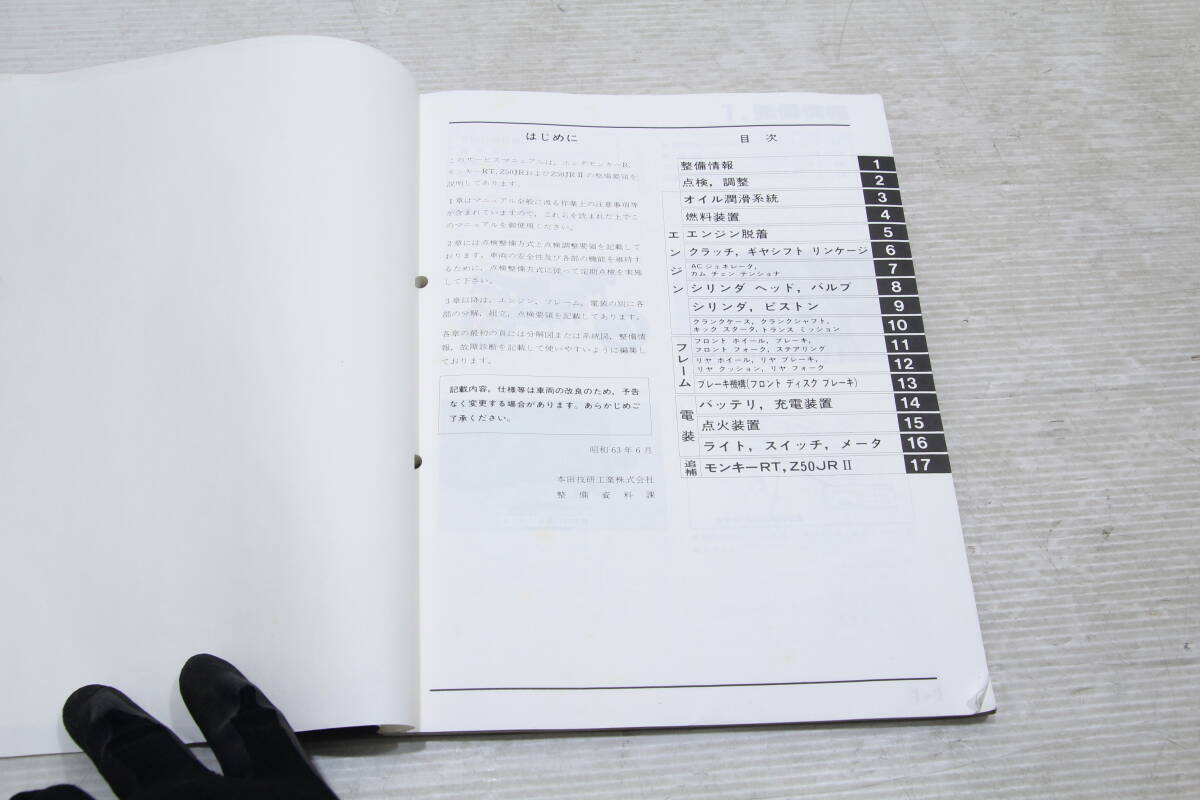 はじめに
このサービスマニュアルは、ホンダモンキーR,
モンキーRT, Z50JRおよびZ50JRⅡの整備要領を
説明してあります。
1章はマニュアル全般に渡る作業上の注意事項等
が含まれていますので、これらを読まれた上でこ
のマニュアルを御使用ください。
2章には点検整備方式と点検調整要領を記載して
おります。車両の安全性及び各部の機能を維持す
るために、点検整備方式に従って定期点検を実施
して下さい。
3章以降は、エンジン、フレーム、電装の別に各
部の分解、組立、点検要領を記載してあります。
各章の最初の頁には分解図または系統図、整備情
報、故障診断を記載して使いやすいように編集し
ております。
記載内容、仕様等は車両の改良のため、予告
なく変更する場合があります。あらかじめご
了承ください。
昭和63年6月
本田技研工業株式会社
整備資料課
目次
整備情報 1
点検，調整 2
エンジン
オイル潤滑系統 3
燃料装置 4
エンジン脱着 5
クラッチ，ギヤシフト リンケージ 6
ACジェネレータ，
カム チェン テンショナ 7
シリンダ ヘッド，バルブ 8
シリンダ，ピストン 9
クランクケース，クランクシャフト，
キック スタータ，トランス ミッション 10
フレーム
フロント ホイール，ブレーキ，
フロント フォーク，ステアリング 11
リヤ ホイール，リヤ ブレーキ，
リヤ クッション，リヤ フォーク 12
ブレーキ機構(フロント ディスク ブレーキ) 13
電装
バッテリ，充電装置 14
点火装置 15
ライト，スイッチ，メータ 16
追補
モンキーRT, Z50JRⅡ 17